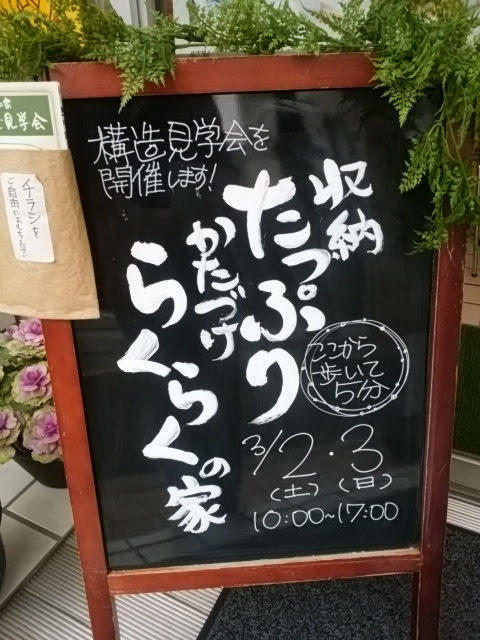 構造見学会を
開催します!
収納
たっぷり
かたづけ
らくらくの家
ここから
歩いて
5分
3/2・3
(土)(日)
10:00~17:00
見学会
チラシを
ご自由に